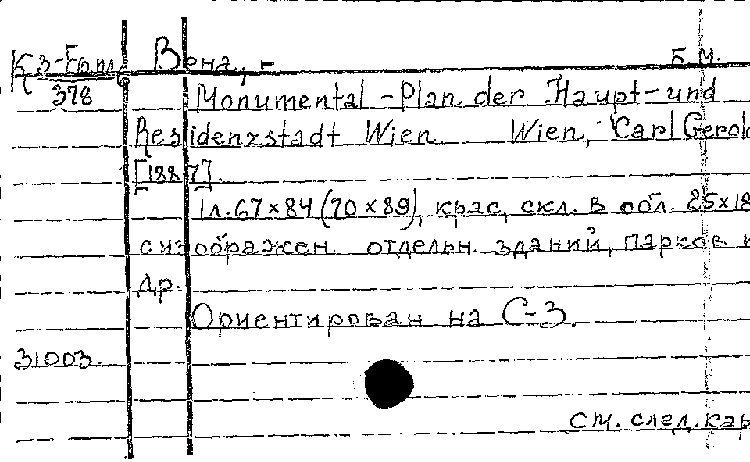 К3-Евп. Вена, - Б.М.
378 Monumental-Plan der Haupt- und
Residenzstadt Wien. Wien, Carl Gerold
[1887].
1л. 67×84 (70×89), крас, скл. в обл. 25×18
с изображен. отдельн. зданий, парков и
др.
Ориентирован на С-З.
31003.
См. след. кар